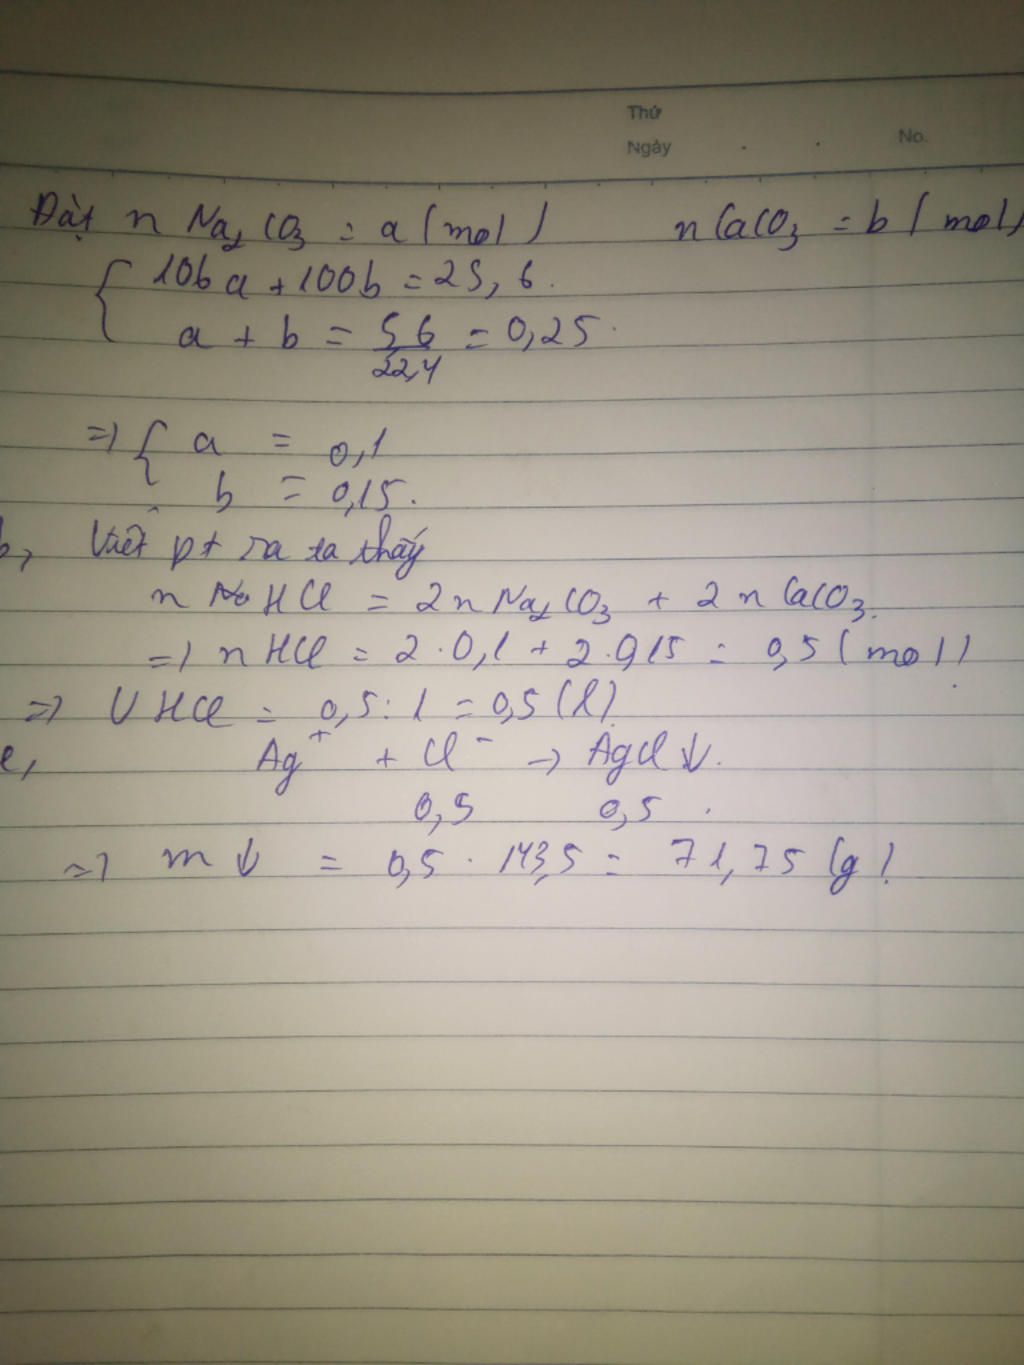 Thứ
Ngày . . No.
Đặt n Na2CO3 = a (mol) n CaCO3 = b (mol)
106a + 100b = 25,6.
a + b = 5,6/22,4 = 0,25.
=> { a = 0,1
b = 0,15.
b, Viết pt ra ta thấy
n HCl = 2n Na2CO3 + 2n CaCO3.
=> n HCl = 2.0,1 + 2.0,15 = 0,5 (mol)
=> V HCl = 0,5 : 1 = 0,5 (l)
c, Ag+ + Cl- -> AgCl ↓.
0,5 0,5 .
=> m ↓ = 0,5 . 143,5 = 71,75 (g)